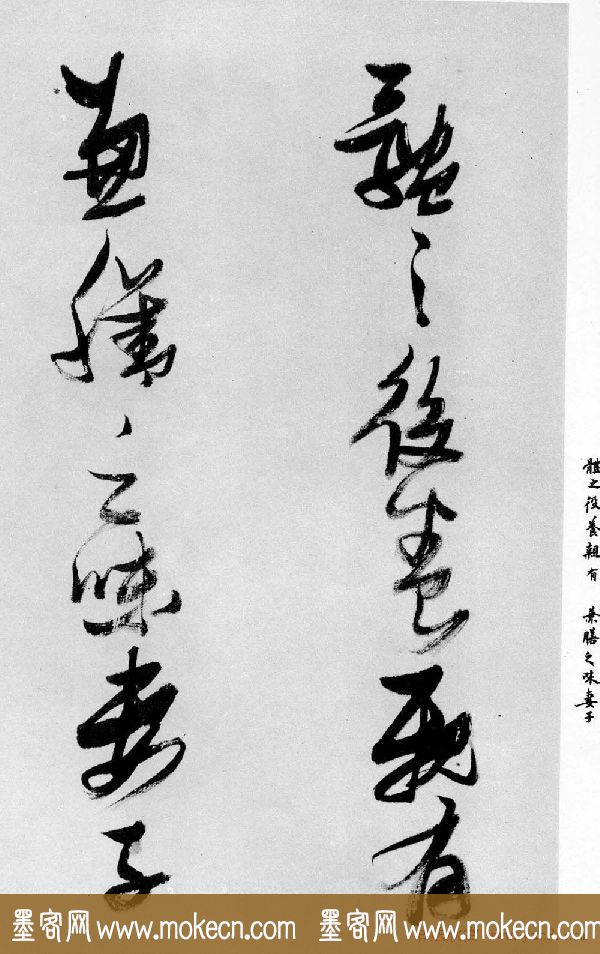 體之役養親有
兼膳之味妻子
體之役養親有 兼膳之味妻子
墨客网 www.mokecn.com 墨客网 www.mokecn.com